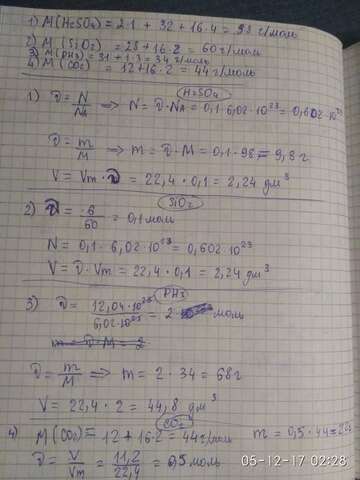 1) M(H2SO4) = 2·1 + 32 + 16·4 = 98 г/моль
2) M (SiO2) = 28 + 16·2 = 60 г/моль
3) M(PH3) = 31 + 1·3 = 34 г/моль
4) M (CO2) = 12 + 16·2 = 44 г/моль
H2SO4
1) ν = N/NA => N = ν·NA = 0,1·6,02·10²³ = 0,602·10²³
ν = m/M => m = ν·M = 0,1·98 = 9,8 г
V = Vm·ν = 22,4·0,1 = 2,24 дм³
SiO2
2) ν = 6/60 = 0,1 моль
N = 0,1·6,02·10²³ = 0,602·10²³
V = ν·Vm = 22,4·0,1 = 2,24 дм³
PH3
3) ν = 12,04·10²³/6,02·10²³ = 2 моль
m = ν·M = 2
ν = m/M => m = 2·34 = 68 г
V = 22,4·2 = 44,8 дм³
CO2
4) M(CO2) = 12 + 16·2 = 44 г/моль m = 0,5·44 =
ν = V/Vm = 11,2/22,4 = 0,5 моль
05-12-17 02:28